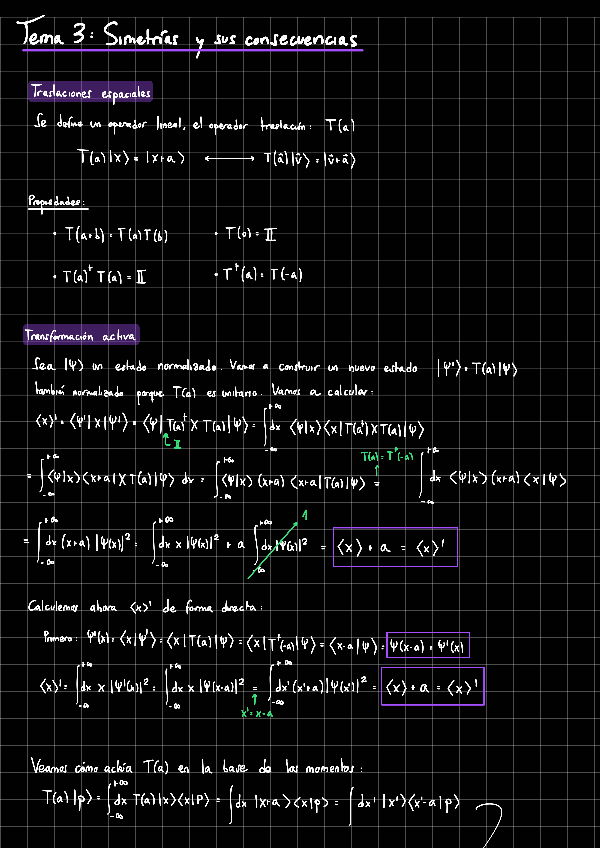 Tema 3: Simetrías y sus consecuencias
Traslaciones espaciales
Se define un operador lineal, el operador traslación: T(a)
T(a)|x⟩ = |x+a⟩ ⟷ T(â)|v̂⟩ = |v̂+â⟩
Propiedades:
• T(a+b) = T(a)T(b) • T(0) = 𝕀
• T(a)† T(a) = 𝕀 • T†(a) = T(-a)
Transformación activa
Sea |Ψ⟩ un estado normalizado. Vamos a construir un nuevo estado |Ψ'⟩ = T(a)|Ψ⟩
también normalizado porque T(a) es unitario. Vamos a calcular:
⟨x⟩' = ⟨Ψ'|X|Ψ'⟩ = ⟨Ψ|T(a)† X T(a)|Ψ⟩ = ∫_{-∞}^{+∞} dx ⟨Ψ|x⟩⟨x|T(a†) X T(a)|Ψ⟩
𝕀
T(a) = T†(-a)
= ∫_{-∞}^{+∞} ⟨Ψ|x⟩⟨x+a|X T(a)|Ψ⟩ dx = ∫_{-∞}^{+∞} ⟨Ψ|x⟩ (x+a) ⟨x+a|T(a)|Ψ⟩ = ∫_{-∞}^{+∞} dx ⟨Ψ|x⟩ (x+a) ⟨x|Ψ⟩
1
= ∫_{-∞}^{+∞} dx (x+a) |Ψ(x)|² = ∫_{-∞}^{+∞} dx x |Ψ(x)|² + a ∫_{-∞}^{+∞} dx |Ψ(x)|² = ⟨x⟩ + a = ⟨x⟩'
Calculemos ahora ⟨x⟩' de forma directa:
Primero: Ψ'(x) = ⟨x|Ψ'⟩ = ⟨x|T(a)|Ψ⟩ = ⟨x|T†(-a)|Ψ⟩ = ⟨x-a|Ψ⟩ = Ψ(x-a) = Ψ'(x)
⟨x⟩' = ∫_{-∞}^{+∞} dx x |Ψ'(x)|² = ∫_{-∞}^{+∞} dx x |Ψ(x-a)|² = ∫_{-∞}^{+∞} dx' (x'+a) |Ψ(x')|² = ⟨x⟩ + a = ⟨x⟩'
x' = x-a
Veamos cómo actúa T(a) en la base de los momentos:
T(a)|p⟩ = ∫_{-∞}^{+∞} dx T(a)|x⟩⟨x|p⟩ = ∫ dx |x+a⟩⟨x|p⟩ = ∫ dx' |x'⟩⟨x'-a|p⟩